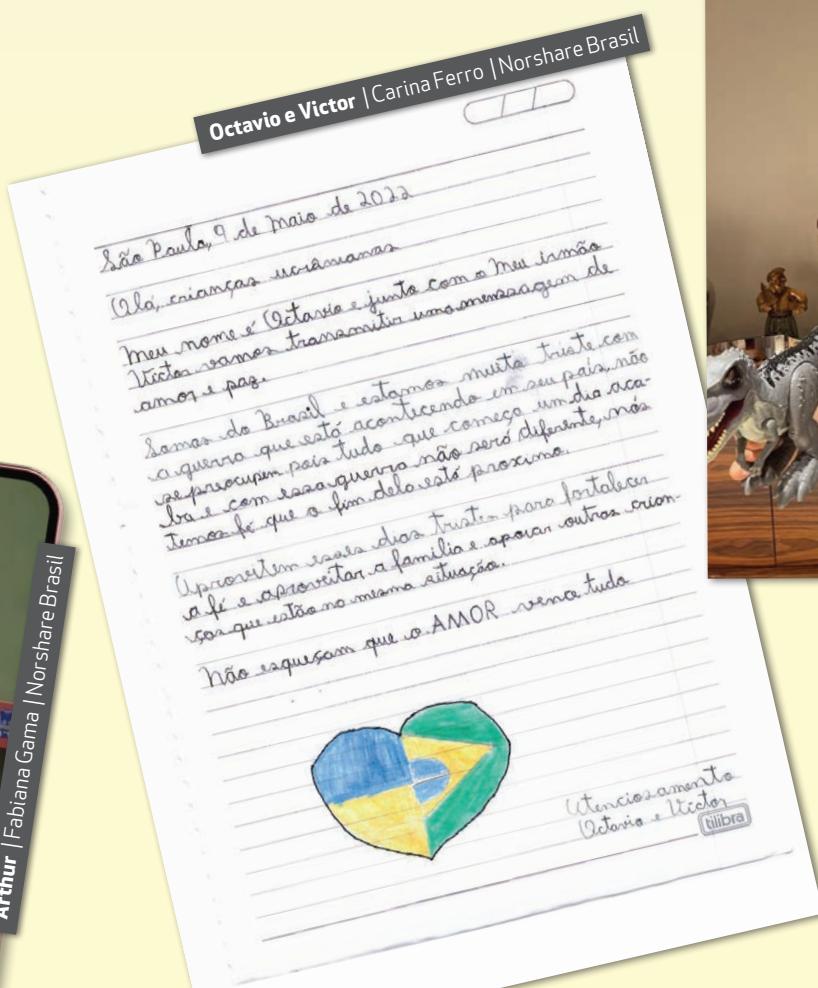 Octavio e Victor | Carina Ferro | Norshare Brasil
São Paulo, 9 de maio de 2022
Olá, crianças ucranianas
Meu nome é Octavio e junto com o meu irmão
Victor vamos transmitir uma mensagem de
amor e paz.
Somos do Brasil e estamos muito triste com
a guerra que está acontecendo em seu país, não
se preocupem pois tudo que começa um dia aca-
ba e com essa guerra não será diferente, nós
temos fé que o fim dela está proximo.
Aproveitem esses dias tristes para fortalecer
a fé e aproveitar a família e apoiar outras crian-
ças que estão na mesma situação.
Não esqueçam que o AMOR vence tudo
Atenciosamente
Octavio e Victor
tilibra
Arthur | Fabiana Gama | Norshare Brasil